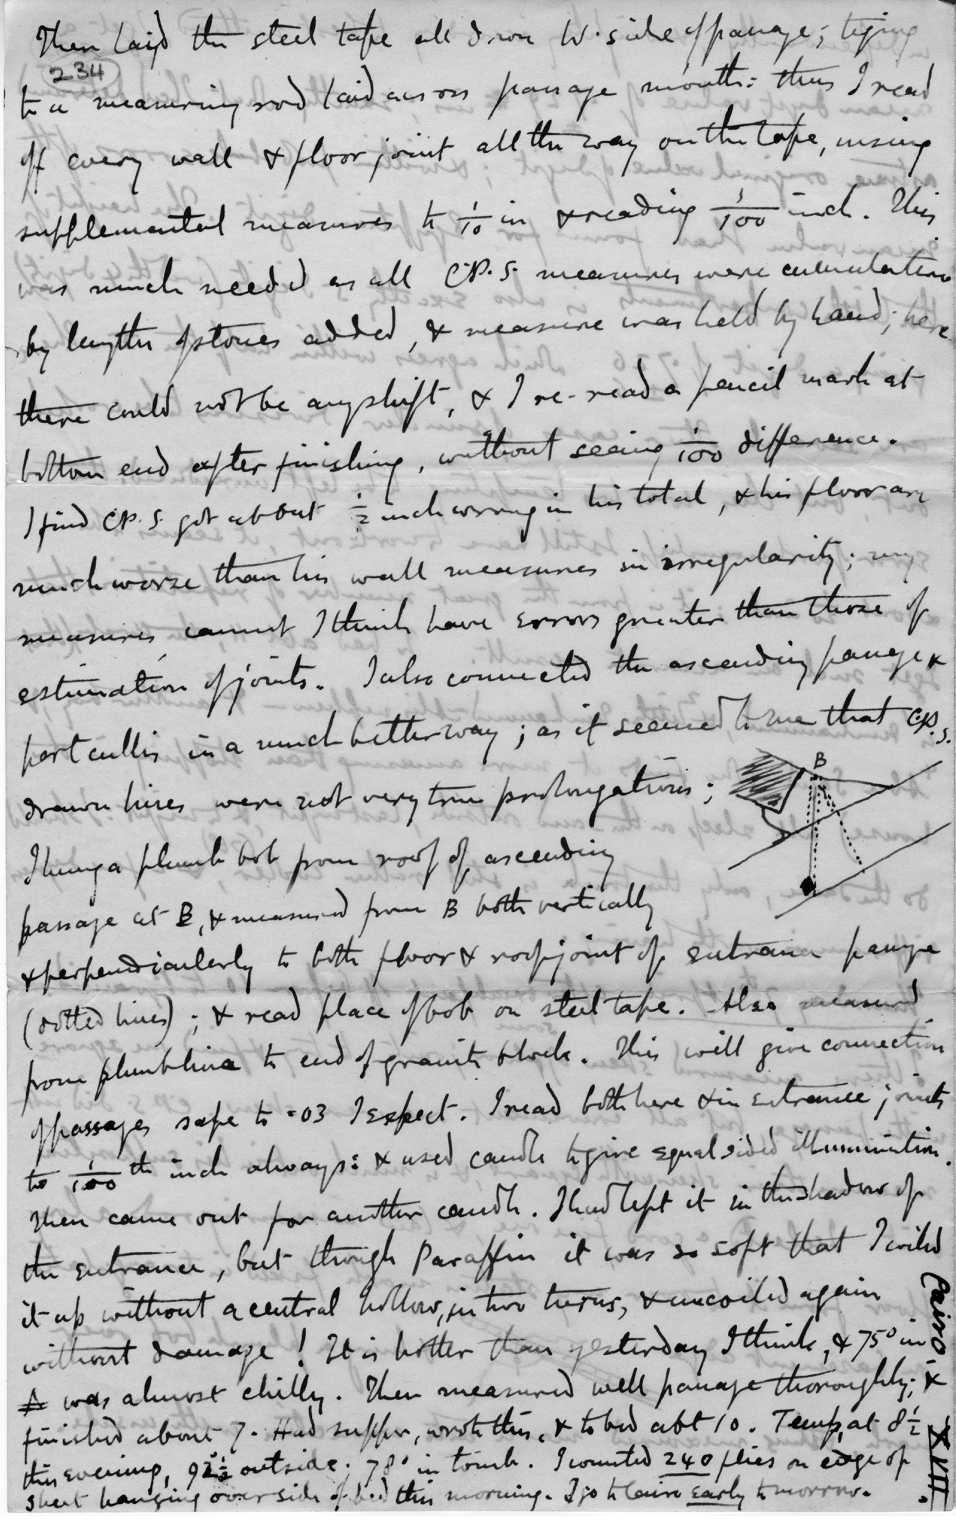 Then laid the steel tape all down W. side of passage; tying
234
to a measuring rod laid across passage mouth: thus I read
off every wall & floor joint all the way on the tape, using
supplemental measures to 1/10 in & reading 1/100 inch. This
was much needed as all C.P.S. measures were cumulative
by lengths of stones added, & measure was held by hand; here
there could not be any shift, & I re-read a pencil mark at
bottom end after finishing, without seeing 1/100 difference.
I find C.P.S. got about 1/2 inch wrong in his total, & his floor are
much worse than his wall measures in irregularity; my
measures cannot I think have errors greater than those of
estimation of joints. I also connected the ascending passage &
portcullis in a much better way; as it seemed to me that C.P.S.
drawn lines were not very true prolongations;
B
I hung a plumb bob from roof of ascending
passage at B, & measured from B both vertically
& perpendicularly to both floor & roof joint of entrance passage
(dotted lines); & read place of bob on steel tape. Also measured
from plumbline to end of granite block. This will give connection
of passages safe to .03 I expect. I read both here & in entrance joints
to 1/100th inch always: & used candle to give equal sided illumination.
Then came out for another candle. I had left it in the shadow of
the entrance, but though Paraffin it was so soft that I coiled
it up without a central hollow, in two turns, & uncoiled again
without damage! It is hotter than yesterday I think, & 75° in
was almost chilly. Then measured well passage thoroughly; &
finished about 7. Had supper, wrote this, & to bed abt 10. Temp. at 8 1/2
this evening, 92 1/2° outside. 78° in tomb. I counted 240 flies on edge of
sheet hanging over side of bed this morning. I go to Cairo early tomorrow.
Cairo
XVII.